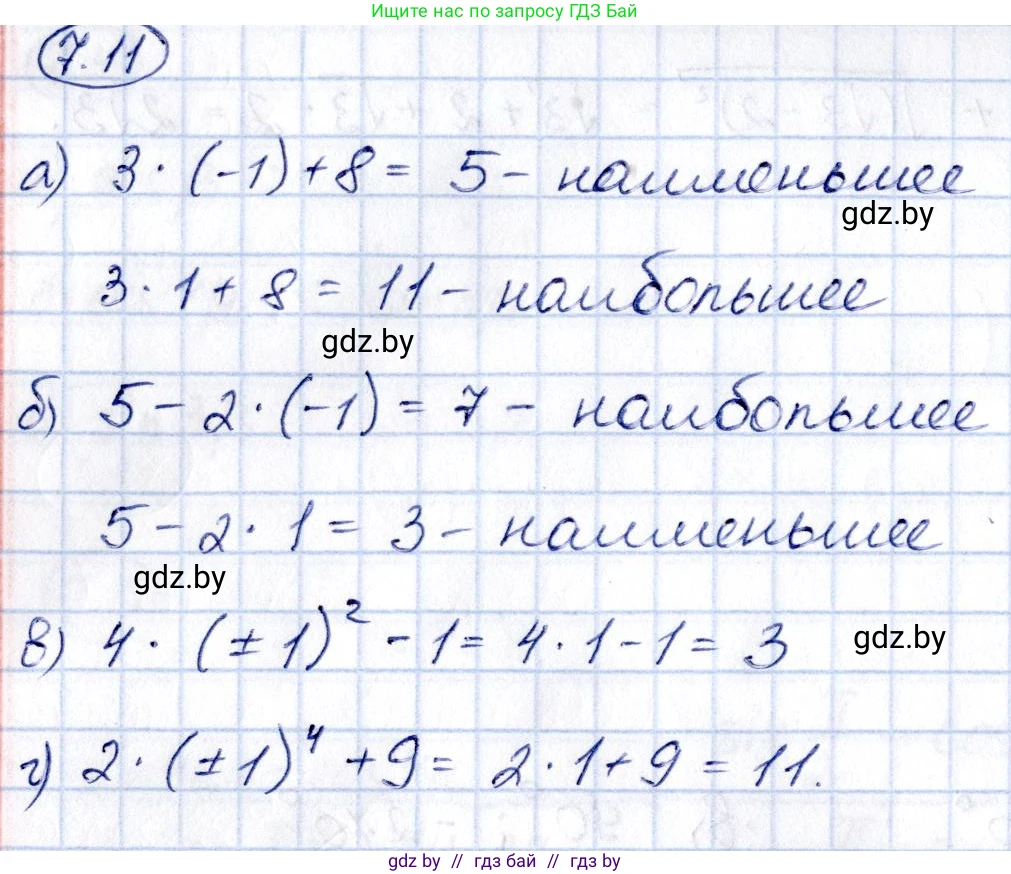 Ищите нас по запросу ГДЗ Бай
7.11
а) 3 · (-1) + 8 = 5 - наименьшее
gdz.by
3 · 1 + 8 = 11 - наибольшее
gdz.by
б) 5 - 2 · (-1) = 7 - наибольшее
5 - 2 · 1 = 3 - наименьшее
gdz.by
в) 4 · (± 1)² - 1 = 4 · 1 - 1 = 3
gdz.by
г) 2 · (± 1)⁴ + 9 = 2 · 1 + 9 = 11.
gdz by // гдз бай // гдз by